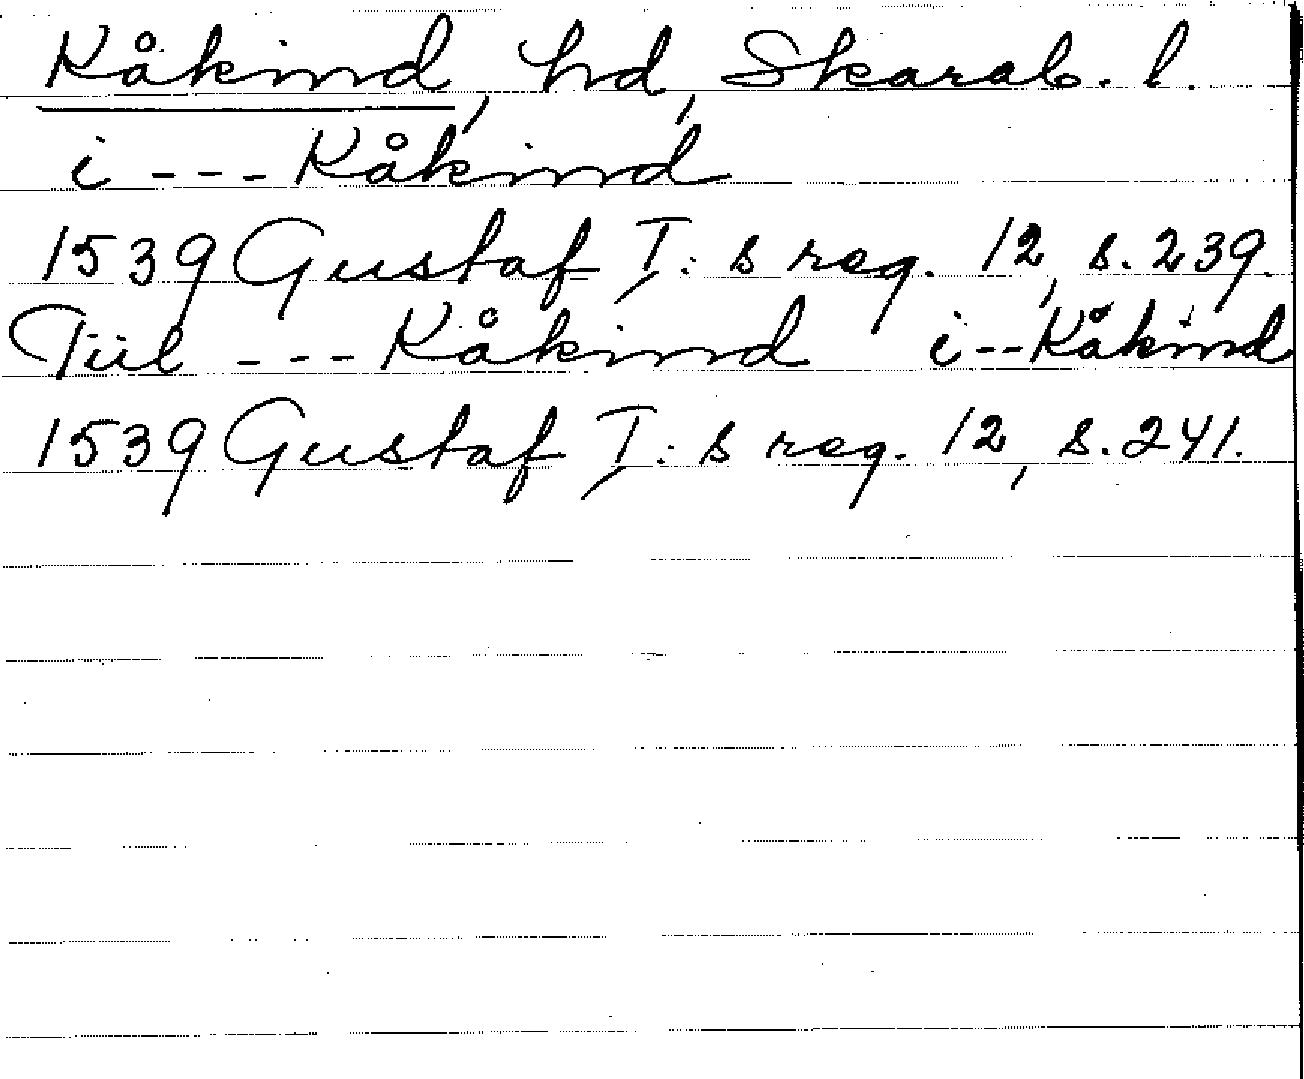 Kåkind, hd, Skarab. l.
i --- Kåkind
1539 Gustaf I:s reg. 12, s. 239.
Tiil --- Kåkind i -- Kåkind
1539 Gustaf I:s reg. 12, s. 241.